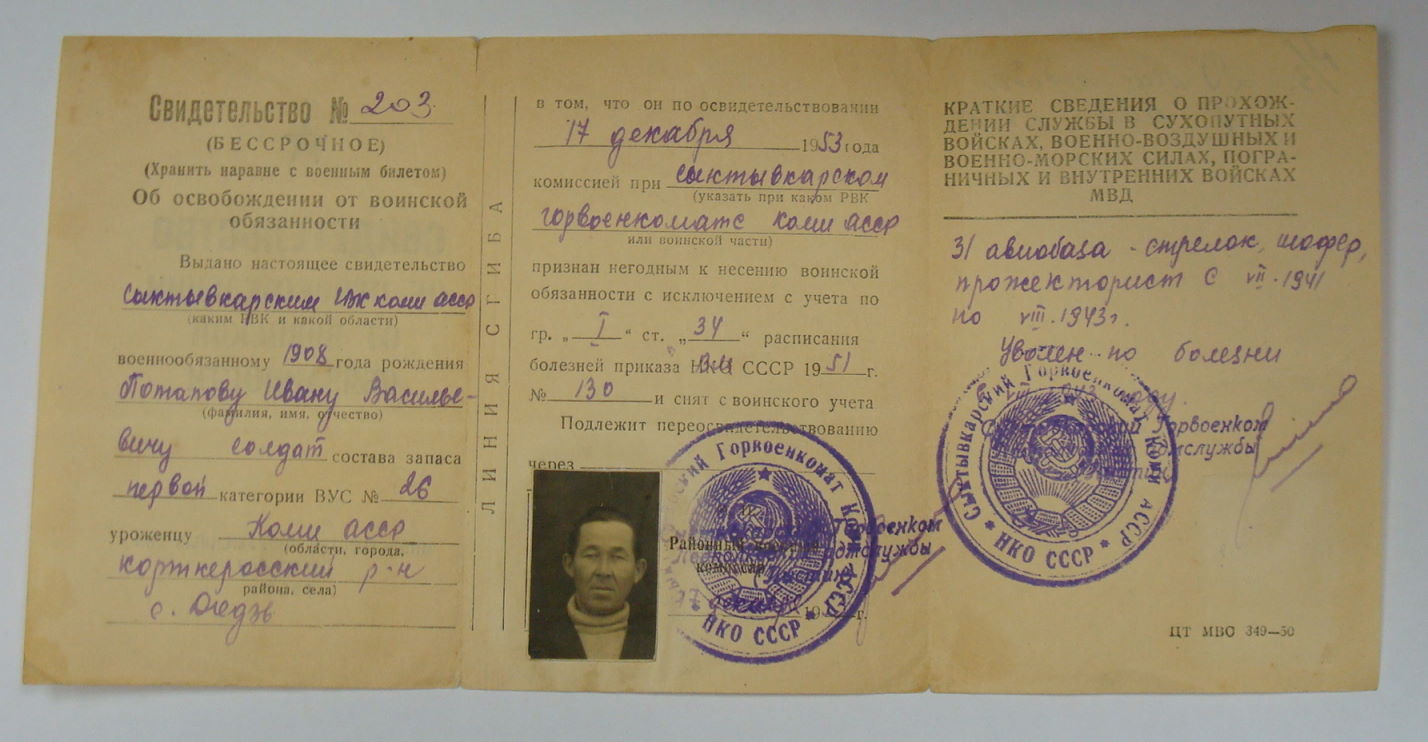 Свидетельство № 203
(БЕССРОЧНОЕ)
(Хранить наравне с военным билетом)
Об освобождении от воинской
обязанности
Выдано настоящее свидетельство
Сыктывкарским ГВК Коми асср
(каким РВК и какой области)
военнообязанному 1908 года рождения
Потапову Ивану Василье-
(фамилия, имя, отчество)
вичу солдат состава запаса
первой категории ВУС № 26
уроженцу Коми асср
(области, города,
корткеросский р-н
района, села)
с.
ЛИНИЯ СГИБА
в том, что он по освидетельствовании
17 декабря 1953 года
комиссией при Сыктывкарском
(указать при каком РВК
горвоенкомате Коми АССР
или воинской части)
признан негодным к несению воинской
обязанности с исключением с учета по
гр. „ I “ ст. „ 34 “ расписания
болезней приказа ВМ СССР 1951 г.
№ 130 и снят с воинского учета
Подлежит переосвидетельствованию
через
Районный
комиссар
19 г.
Горвоенкомат Коми АССР
* НКО СССР *
КРАТКИЕ СВЕДЕНИЯ О ПРОХОЖ-
ДЕНИИ СЛУЖБЫ В СУХОПУТНЫХ
ВОЙСКАХ, ВОЕННО-ВОЗДУШНЫХ И
ВОЕННО-МОРСКИХ СИЛАХ, ПОГРА-
НИЧНЫХ И ВНУТРЕННИХ ВОЙСКАХ
МВД
31 авиобаза - стрелок, шофер,
прожекторист с VII.1941
по VIII.1943г.
Уволен по болезни
году.
Горвоенком
Сыктывкарский Горвоенкомат Коми АССР
* НКО СССР *
ЦТ МВС 349—50